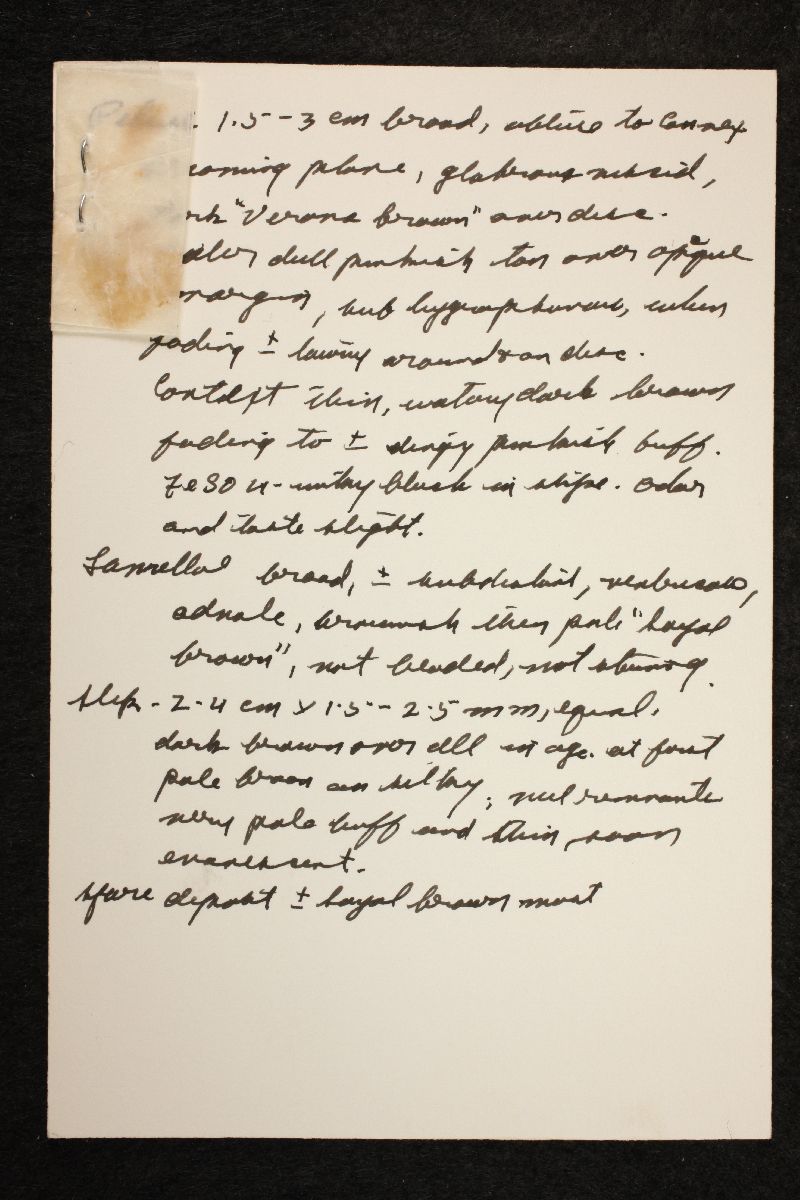 Pileus 1.5-3 cm broad, obtuse to convex
coming plane, glabrous viscid,
dark "Verona brown" over disc.
paler dull pinkish tan over opaque
margin, subhygrophanous, when
fading ± tawny around & on disc.
Context thin, watery dark brown
fading to ± dingy pinkish buff.
FeSO4 - inky black in stipe. Odor
and taste slight.
Lamellae broad, ± subdistant,
adnate, brownish then pale "Sayal
brown", not beaded, not staining.
Stipe 2-4 cm x 1.5-2.5 mm, equal.
dark brown over all in age. at first
pale brown silky; veil remnants
very pale buff and thin, soon
evanescent.
Spore deposit ± Sayal brown moist